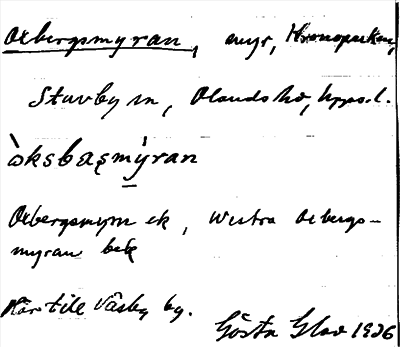 Oxbergsmyran, myr, Kronoparken,
Stavby sn, Olands hd, Upps. l.
òksbaςmýran
Oxbergsmyrn ek, Westra oxbergs-
myran bek
Hör till Väsby by.
Gösta 1926